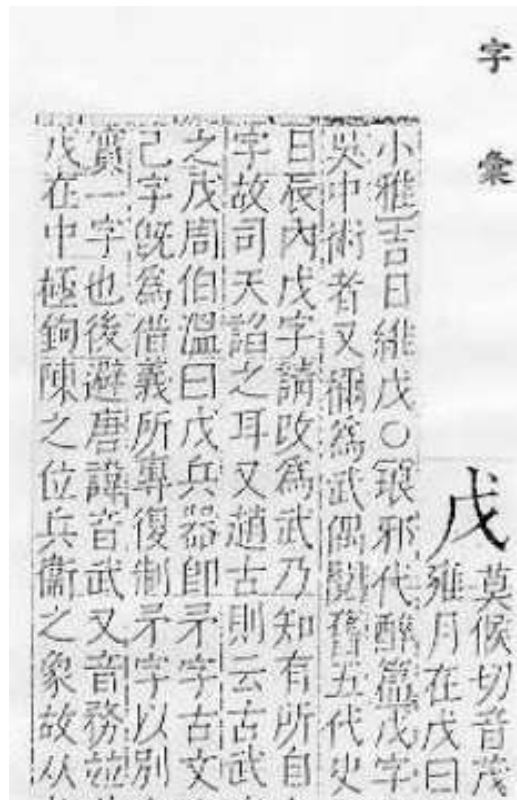 字彙
戊
莫候切音茂
雍月在戊曰
小雅吉日維戊○琅邪代醉篇戊字
吳中術者又稱爲武偶閱舊五代史
日辰內戊字請改爲武乃知有所自
字故司天諂之耳又趙古則云古武
之戊周伯溫曰戊兵器卽矛字古文
己字旣爲借義所專復制矛字以別
實一字也後避唐諱音武又音務竝
戊在中極鉤陳之位兵衞之象故从